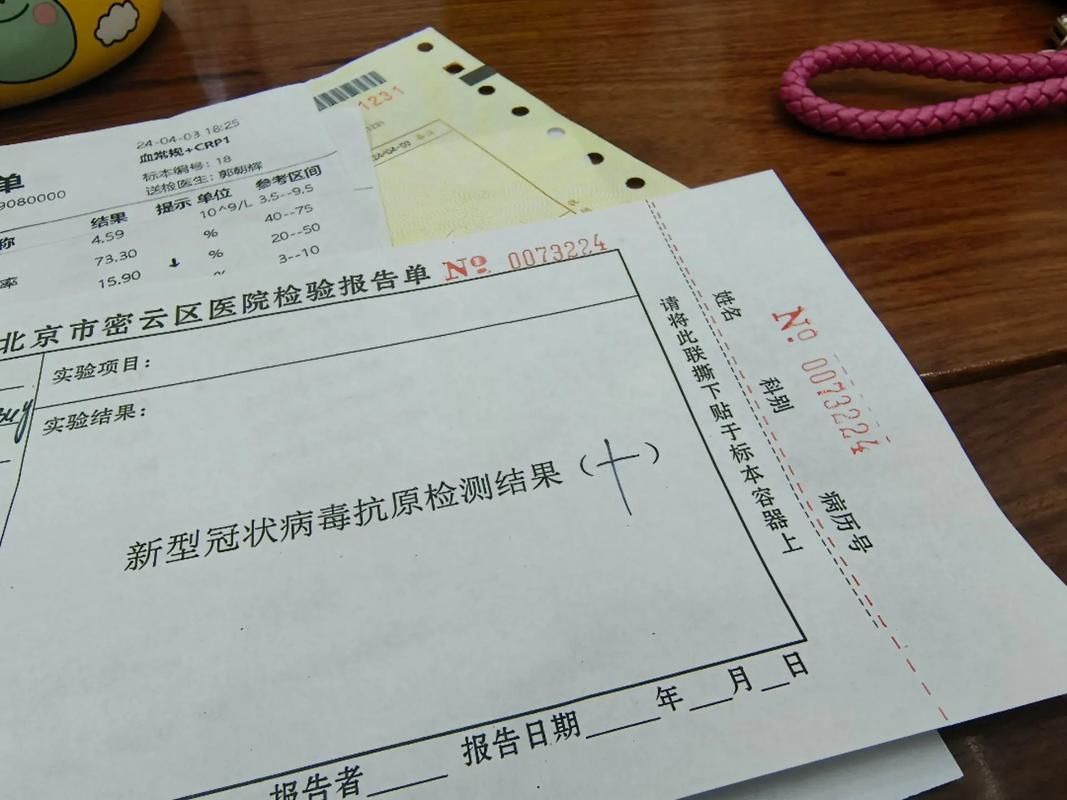 24-04-03 18:25
血常规+CRP1
标本编号: 18
送检医生: 郭朝辉
单
9080000
称 结果 提示 单位 参考区间
4.59 10^9/L 3.5--9.5
73.30 % 40--75
率 15.90 ↓ % 20--50
3--10
1231
24-04-03
北京市密云区医院检验报告单 No 0073224
实验项目:
实验结果:
新型冠状病毒抗原检测结果(+)
报告者____ 报告日期____年___月__日
请将此联撕下贴于标本容器上
姓名 科别 病历号
No 0073224